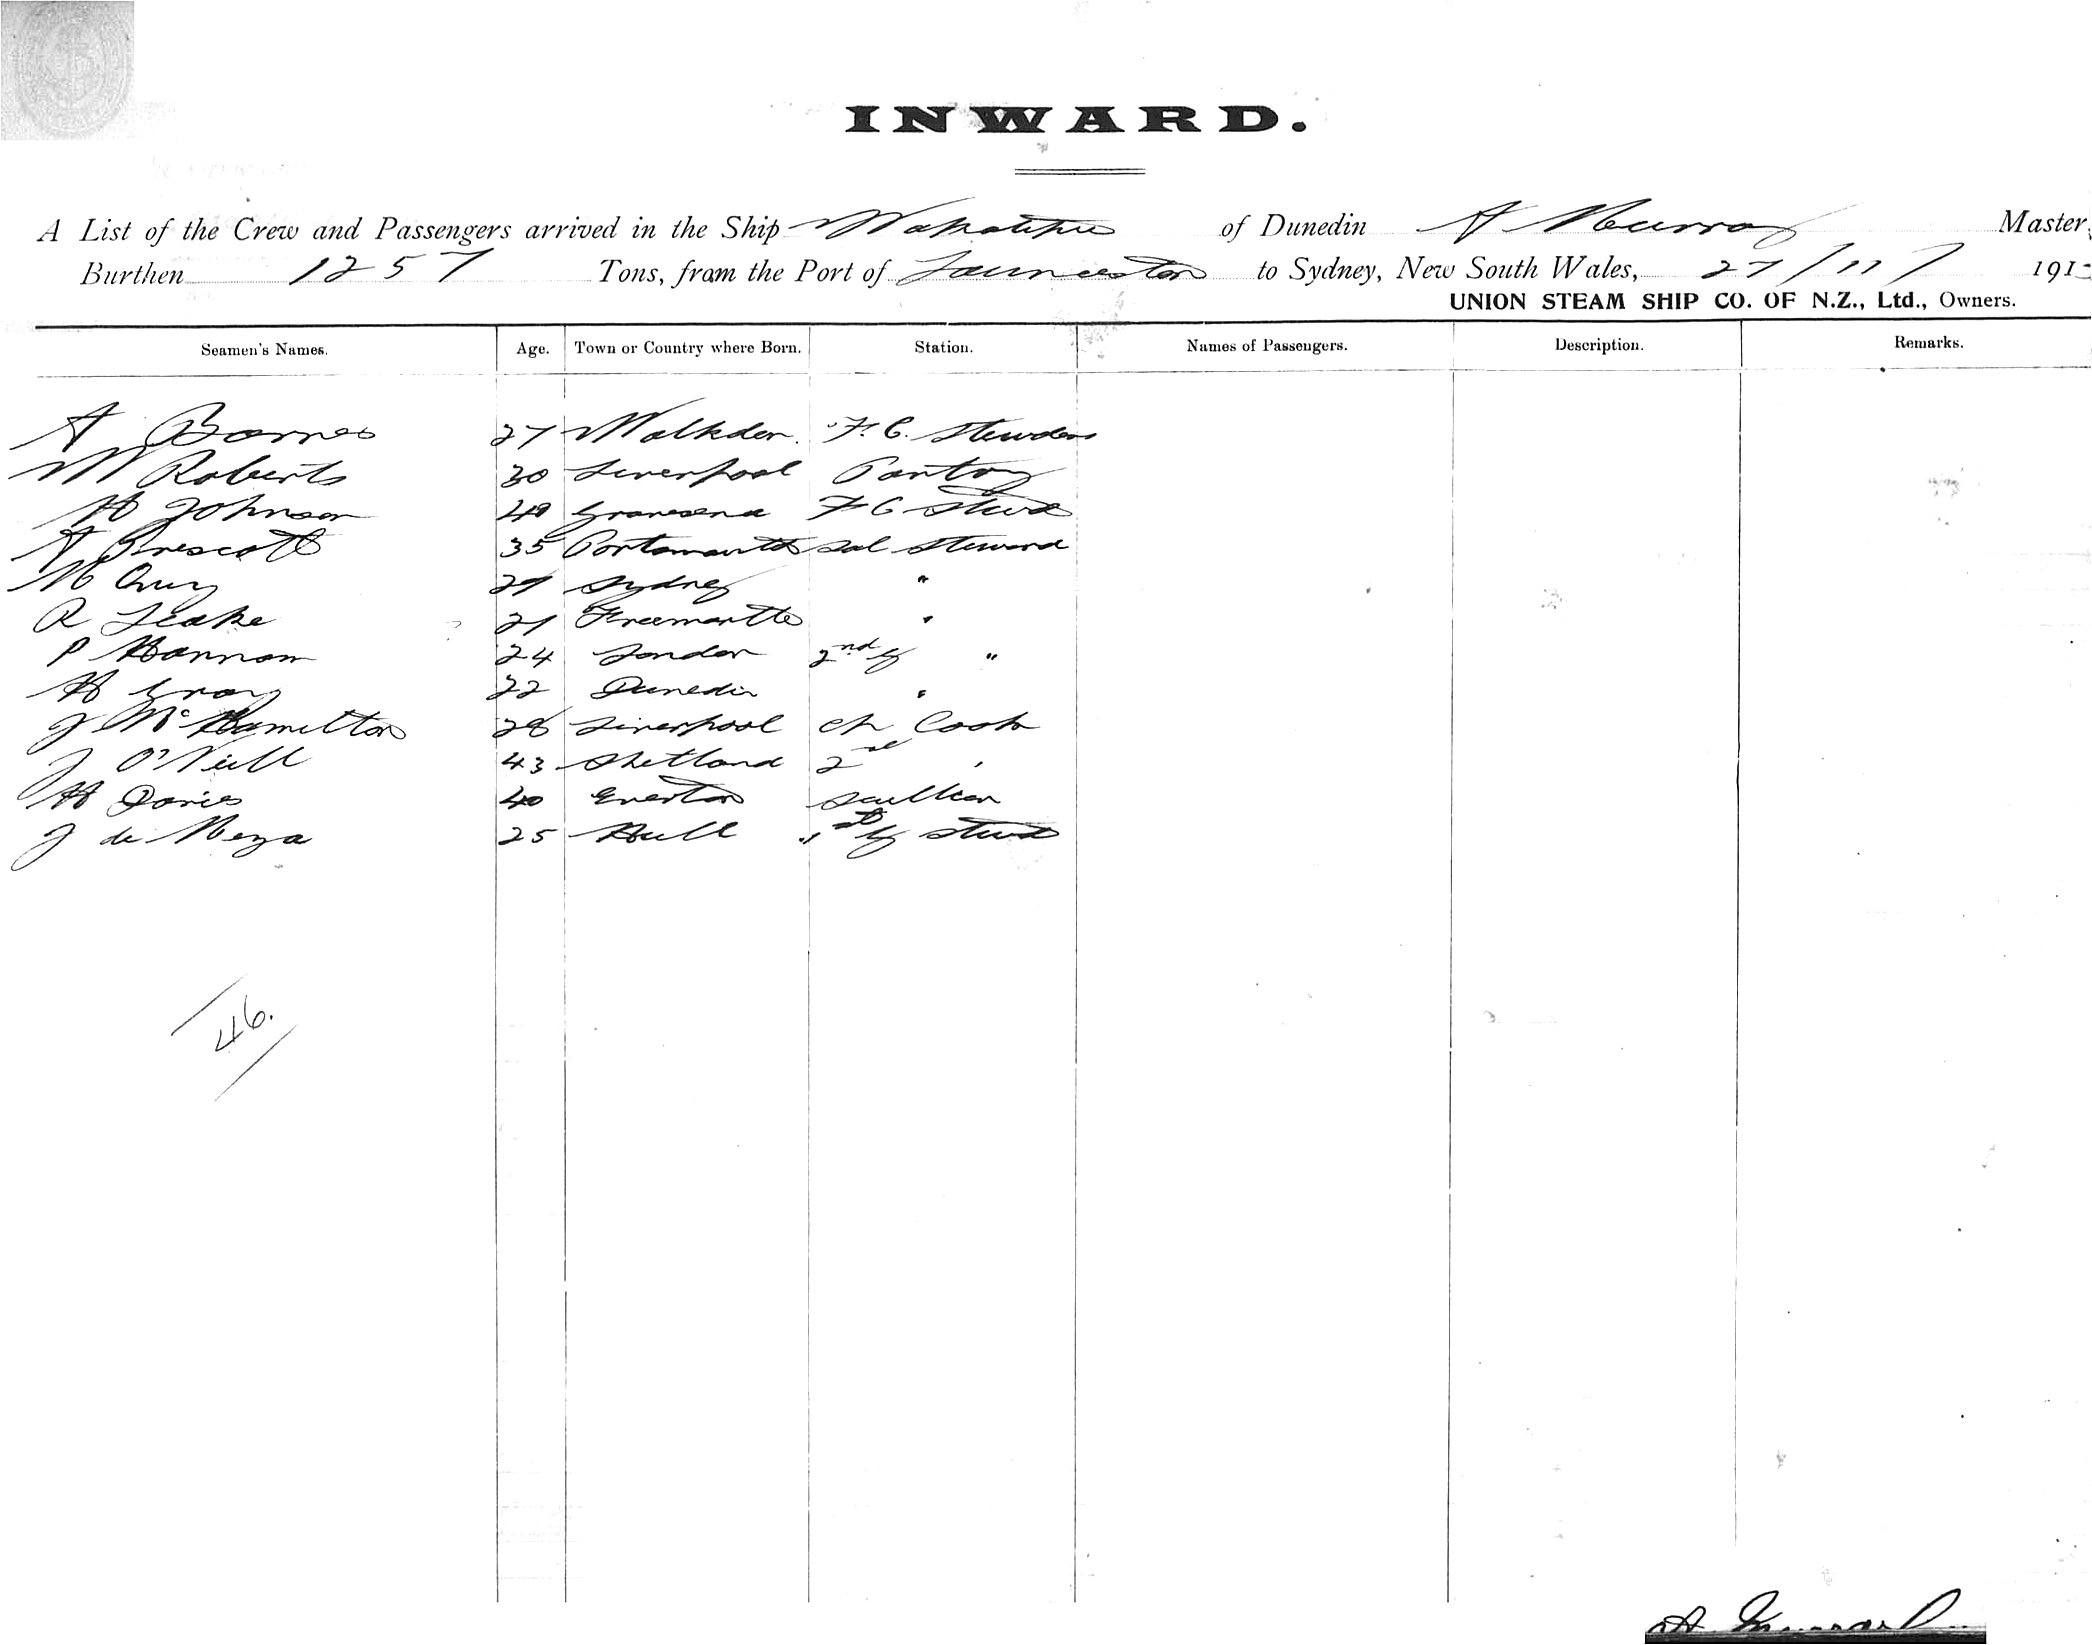 INWARD.
A List of the Crew and Passengers arrived in the Ship Wakatipu of Dunedin A Murray Master,
Burthen 1257 Tons, from the Port of Launceston to Sydney, New South Wales, 27/11/ 191
UNION STEAM SHIP CO. OF N.Z., Ltd., Owners.
Seamen's Names. Age. Town or Country where Born. Station. Names of Passengers. Description. Remarks.
A Barnes 27 Walkden. F. C. Stewdess
M Roberts 30 Liverpool Pantry
H Johnson 40 Gravesend F C Stwd
A Prescott 35 Portsmouth Sal Steward
27 Sydney "
R Leake 21 Freemantle "
P Hannan 24 London 2nd Cl "
H Gray 22 Dunedin "
J McHamilton 28 Liverpool Ch Cook
J O'Neill 43 Shetland 2nd "
H Davies 40 Everton Scullion
J de Meza 25 Hull Stwd
46.
A Murray